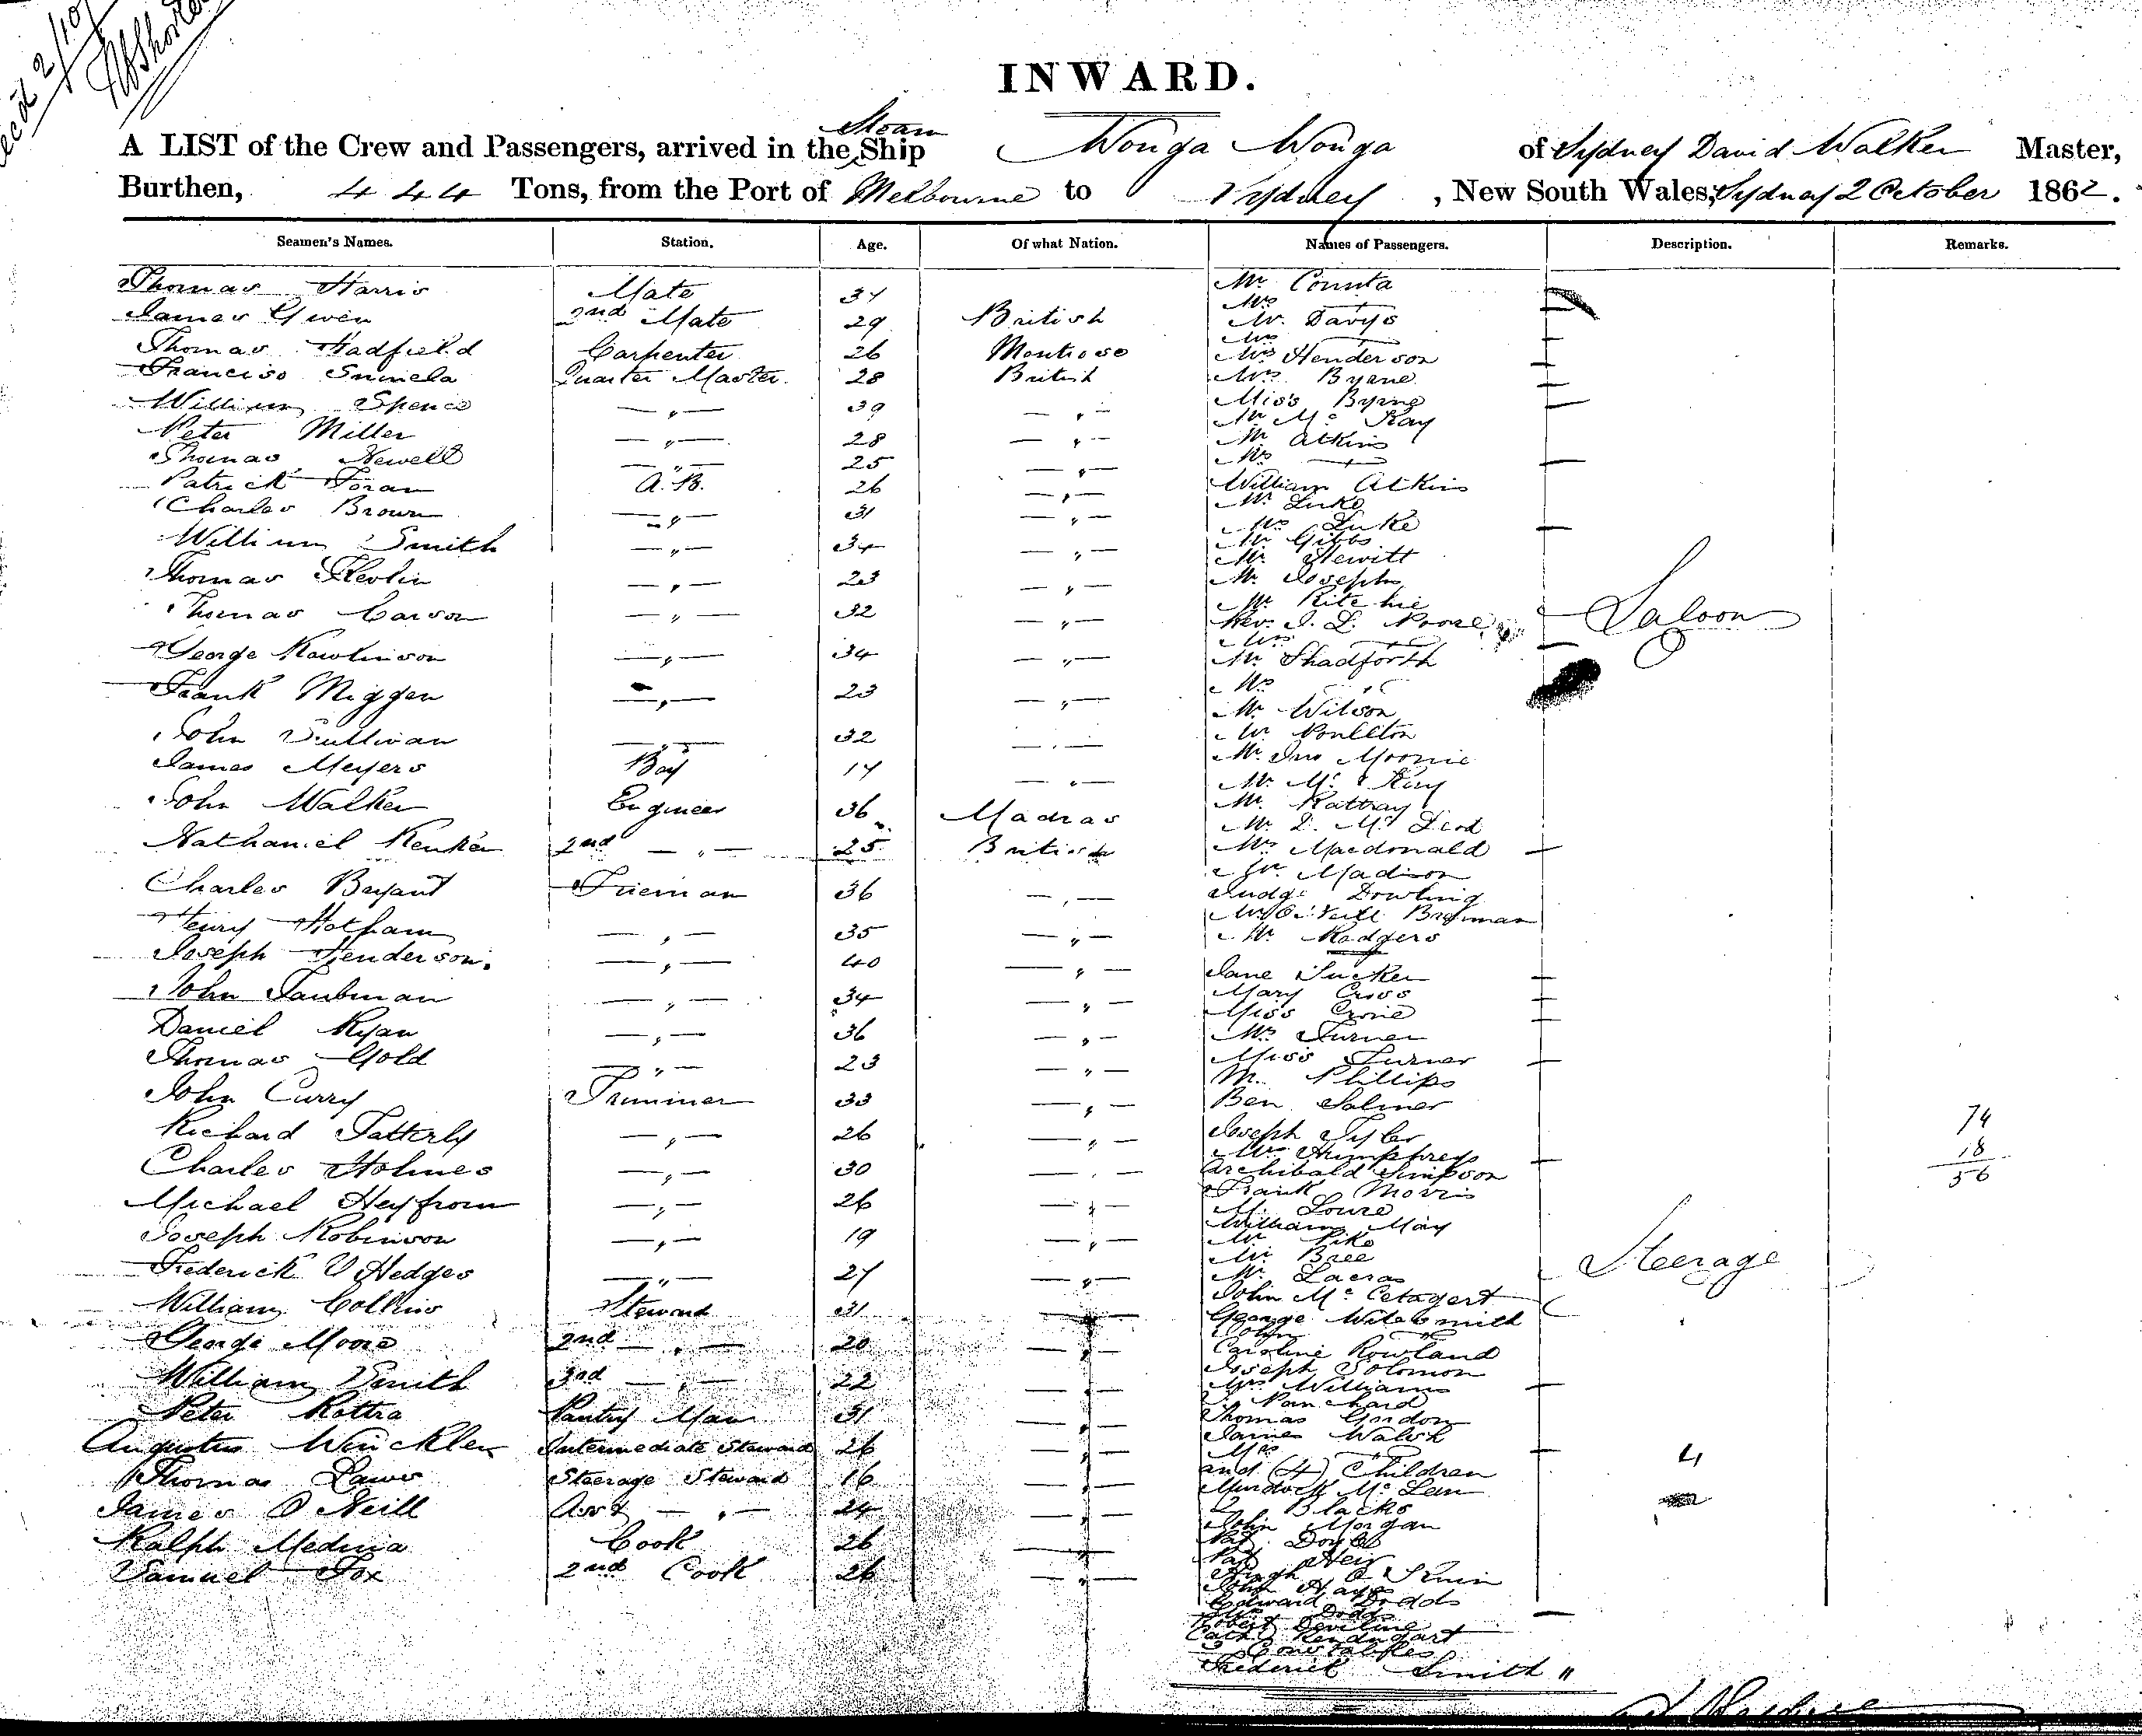 INWARD.
A LIST of the Crew and Passengers, arrived in the Steam Ship Wonga Wonga of Sydney David Walker Master,
Burthen, 444 Tons, from the Port of Melbourne to Sydney, New South Wales, Sydney 2 October 1862.
Seamen's Names. Station. Age. Of what Nation. Names of Passengers. Description. Remarks.
Thomas Harris Mate 34
James Gwen 2nd Mate 29 British
Thomas Hadfield Carpenter 26 Montrose
Francisco Quarter Master 28 British
William Spence —"— 39 —"—
Peter Miller —"— 28 —"—
Thomas Newell —"— 25 —"—
Patrick Foran A.B. 26 —"—
Charles Brown —"— 31 —"—
William Smith —"— 34 —"—
Thomas —"— 23 —"—
Thomas Carson —"— 32 —"—
George Rawlinson —"— 34 —"—
Frank Miggen —"— 23 —"—
John Sullivan —"— 32 —"—
James Meyers Boy 17 —"—
John Walker Engineer 36 Madras
Nathaniel 2nd —"— 25 British
Charles Bryant Fireman 36 —"—
Henry Hotham —"— 35 —"—
Joseph Henderson. —"— 40 —"—
John Taubman —"— 34 —"—
Daniel Ryan —"— 36 —"—
Thomas Gold —"— 23 —"—
John Curry Trimmer 33 —"—
Richard Tatterly —"— 26 —"—
Charles Holmes —"— 30 —"—
Michael Heyfrom —"— 26 —"—
Joseph Robinson —"— 19 —"—
Frederick Hedges —"— 27 —"—
William Collins Steward 31 —"—
George Moore 2nd —"— 20 —"—
William Smith 3rd —"— 22 —"—
Peter Rottra Pantry Man 31 —"—
Augustus Winckler Intermediate Steward 26 —"—
Thomas Lawes Steerage Steward 16 —"—
James O'Neill Asst —"— 24 —"—
Ralph Medina Cook 26 —"—
Samuel Fox 2nd Cook 26 —"—
Mr Counta
Mrs —"—
Mr. Davys
Mrs —"—
Mrs Henderson
Mrs. Byrne
Miss Byrne
Mr Mc Kay
Mr Atkins
Mrs —"—
William Atkins
Mr Luke
Mrs Luke
Mr Gibbs
Mr. Hewitt
Mr. Joseph
Mr Ritchie
Rev. J. L. Poore
Mrs —"—
Mr Shadforth
Mrs "
Mr Wilson
Mr Poulton
Mr. Jno Moonie
Mr. Mc Kay
Mr. Rattray
Mr D. Mc
Mrs Macdonald
Mr. Madison
Judge Dowling
Mr O'Neill Brenan
Mr. Rodgers
Saloon
Jane Tucker
Mary Cross
Miss
Mrs Turner
Miss Turner
M. Phillips
Ben
Joseph Tyler
Mrs Humphreys
Archibald Simpson
Frank Morris
M. Lowe
William May
Mr Pike
Mr Bree
Mr. Lacras
John Mc
George
John —"—
Caroline Rowland
Joseph Solomon
Mrs Williams
Thomas Gordon
James Walsh
Mrs —"—
and (4) Children 4
Murdoch Mc Lean
2 Blacks
John Morgan
Pat. Doyle
Pat
Hugh
John Hayes
Edward Dodds
Mrs Dodds
Robert Devline
Constables
Frederick Smith "
Steerage
74
18
56